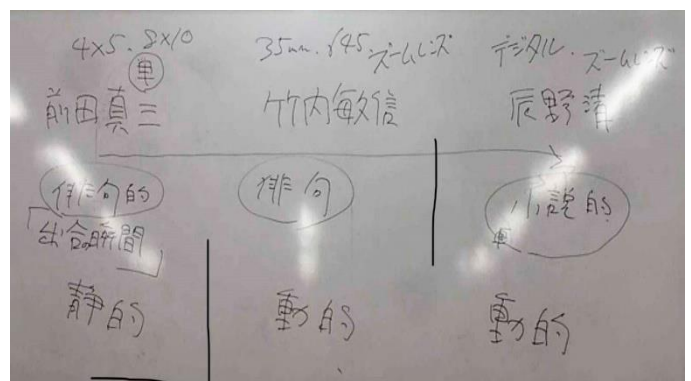 4×5. 8×10
35mm. 645. ズームレンズ
デジタル. ズームレンズ
単
前田真三
竹内敏信
辰野清
俳句的
俳句
小説的
「出合の瞬間」
静的
動的
動的